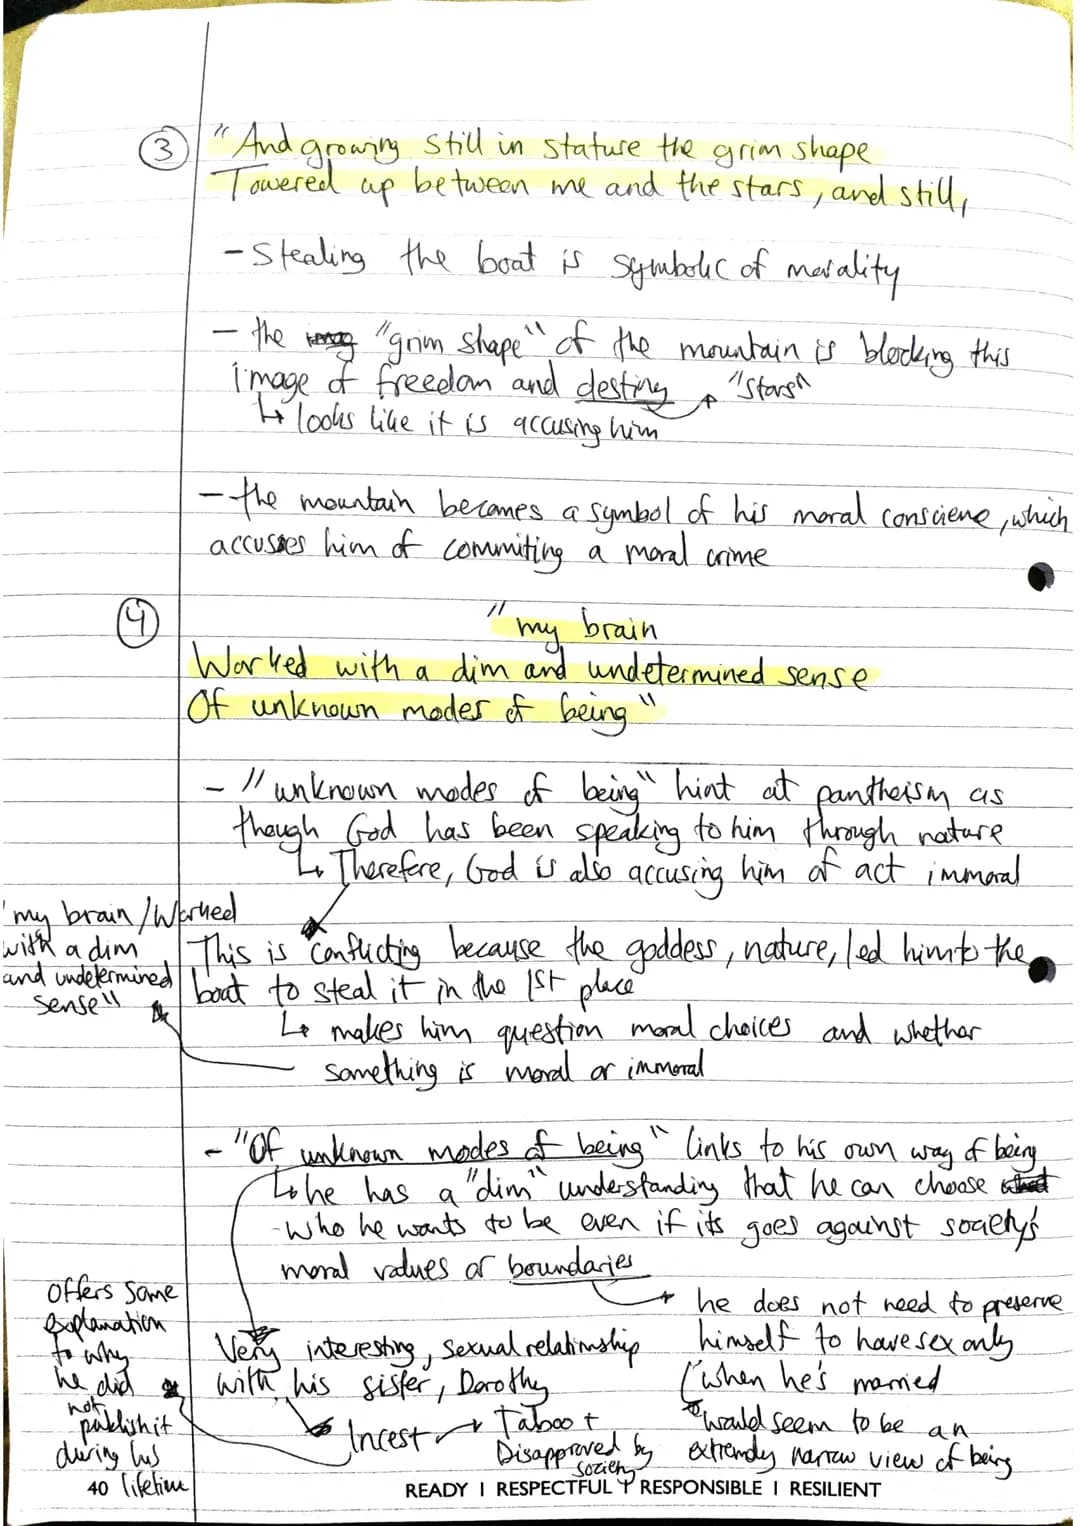 ③ "And growing still in stature the grim shape
Towered up between me and the stars, and still,
- Stealing the boat is symbolic of morality
- the "grim shape" of the mountain is blocking this
image of freedom and destiny → "stars"
↳ looks like it is accusing him
- the mountain becomes a symbol of his moral consciene, which
accusses him of commiting a moral crime
④ "my brain
Worked with a dim and undetermined sense
Of unknown modes of being"
- "unknown modes of being" hint at pantheism as
though God has been speaking to him through nature
↳ Therefore, God is also accusing him of act immoral
"my brain/Worked
with a dim
and undetermined
sense"
This is conflicting because the goddess, nature, led him to the
boat to steal it in the 1st place
↳ makes him question moral choices and whether
something is moral or immoral
- "Of unknown modes of being" links to his own way of being
↳ he has a "dim" understanding that he can choose
who he wants to be even if its goes against society's
moral values or boundaries
→ he does not need to preserve
himself to have sex only
when he's married
would seem to be an
extremely narrow view of being
Very interesting, sexual relationship
with his sister, Dorothy
Incest → Taboo +
Disapproved by
society
Offers some
explanation
to why
he did
not
publish it
during his
lifetime
40
READY I RESPECTFUL I RESPONSIBLE I RESILIENT